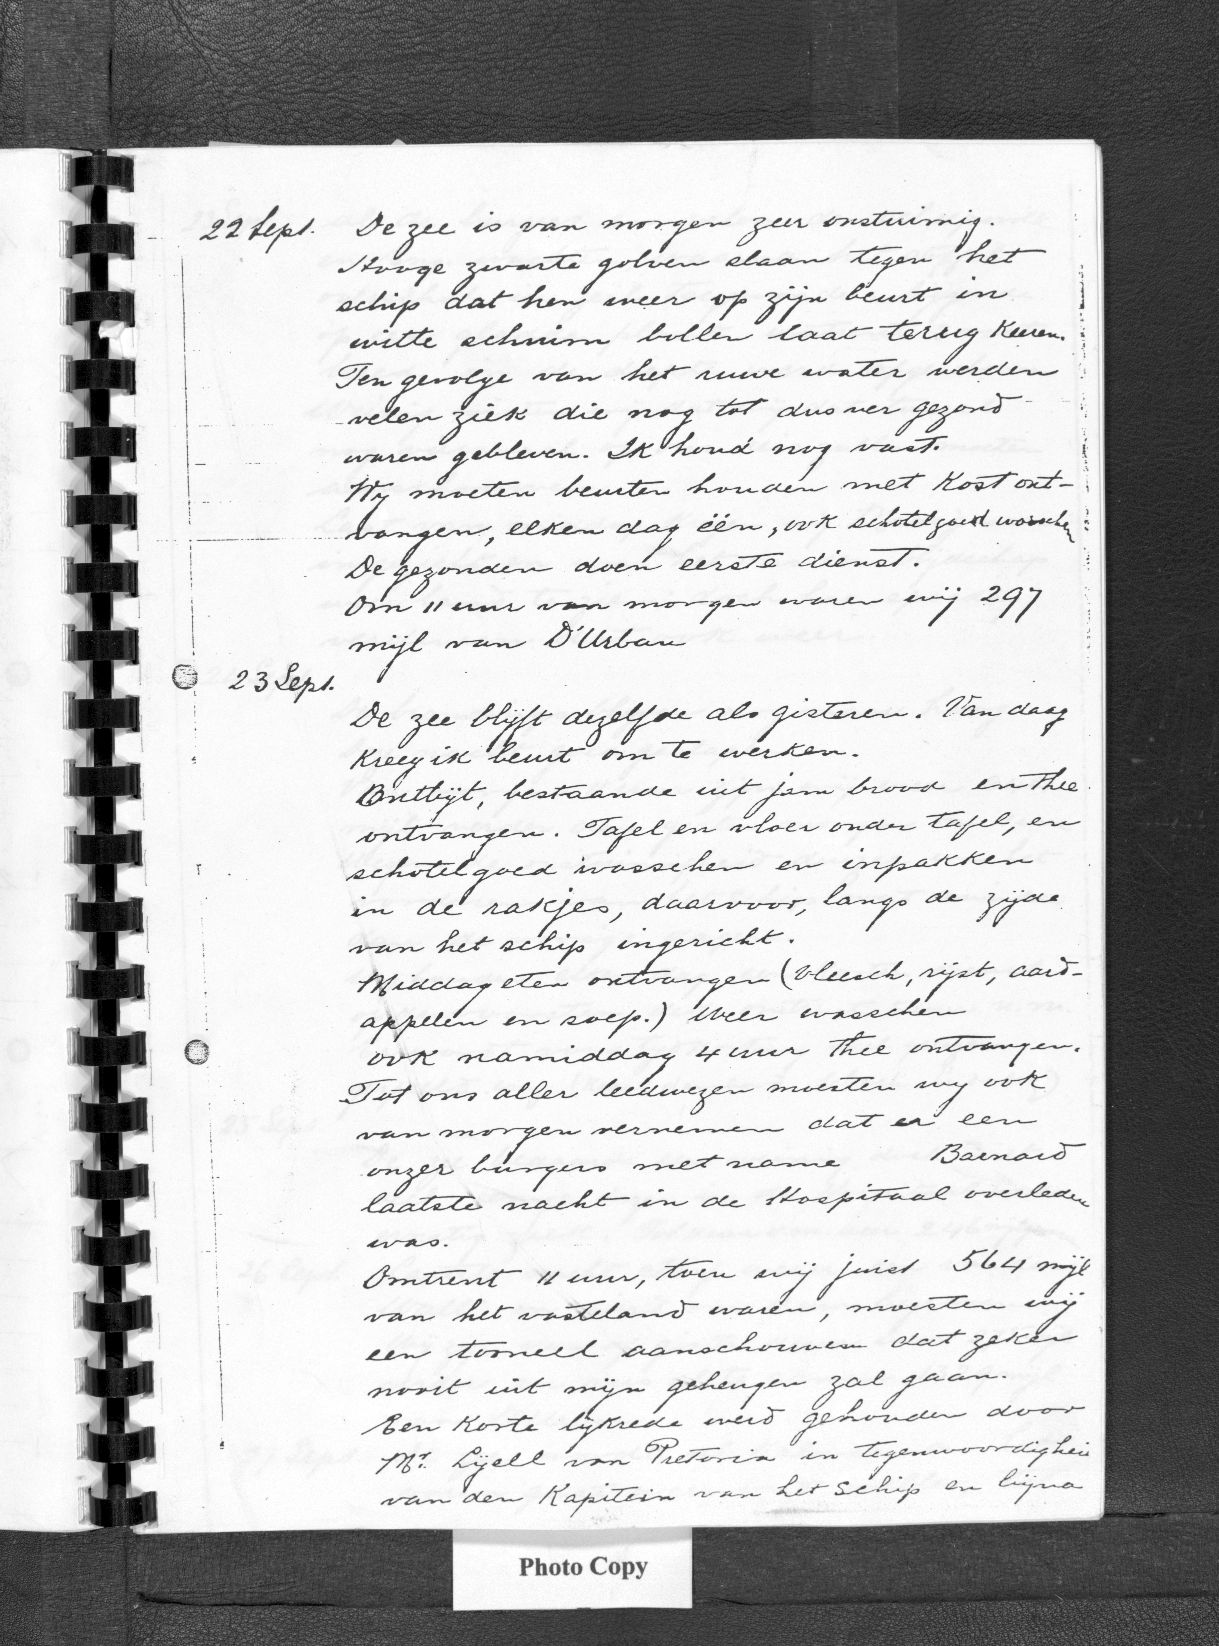 22 Sept. De zee is van morgen zeer onstuimig.
Hooge zwarte golven slaan tegen het
schip dat hen weer op zijn beurt in
witte schuim bollen laat terug keeren.
Ten gevolge van het ruwe water werden
velen ziek die nog tot dusver gezond
waren gebleven. Ik houd nog vast.
Wy moeten beurten houden met Kost ont-
vangen, elken dag één, ook schotelgoed wasschen
De gezonden doen eerste dienst.
Om 11 uur van morgen waren wij 297
mijl van D'Urban
23 Sept.
De zee blijft dezelfde als gisteren. Van daag
Kreeg ik beurt om te werken.
Ontbijt, bestaande uit jam brood en thee
ontvangen. Tafel en vloer onder tafel, en
schotelgoed wasschen en inpakken
in de rakjes, daarvoor, langs de zijde
van het schip ingericht.
Middageten ontvangen (vleesch, rijst, aard-
appelen en soep.) Weer wasschen
ook namiddag 4 uur thee ontvangen.
Tot ons aller leedwezen moesten wy ook
van morgen vernemen dat er een
onzer burgers met name Barnard
laatste nacht in de Hospitaal overleden
was.
Omtrent 11 uur, toen wij juist 564 mijl
van het vasteland waren, moesten wij
een tooneel aanschouwen dat zeker
nooit uit mijn geheugen zal gaan.
Een Korte lijkrede werd gehouden door
Mr. Lijell van Pretoria in tegenwoordigheid
van den Kapitein van het schip en bijna
Photo Copy